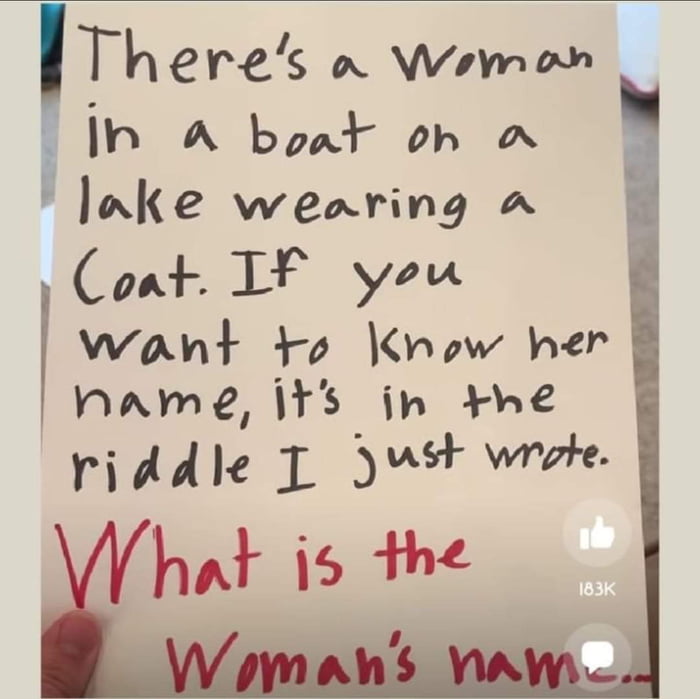 There's a Woman
in a boat on a
lake wearing a
Coat. If you
want to know her
name, it's in the
riddle I just wrote.
What is the
Woman's name...
183K